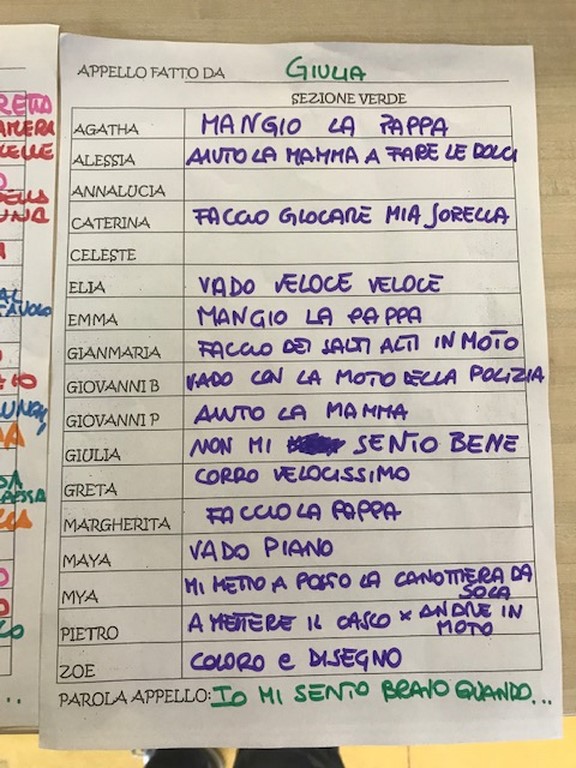 APPELLO FATTO DA GIULIA
SEZIONE VERDE
AGATHA MANGIO LA PAPPA
ALESSIA AIUTO LA MAMMA A FARE LE DOLCI
ANNALUCIA
CATERINA FACCIO GIOCARE MIA SORELLA
CELESTE
ELIA VADO VELOCE VELOCE
EMMA MANGIO LA PAPPA
GIANMARIA FACCIO DEI SALTI ALTI IN MOTO
GIOVANNI B VADO CON LA MOTO DELLA POLIZIA
GIOVANNI P AIUTO LA MAMMA
GIULIA NON MI SENTO BENE
GRETA CORRO VELOCISSIMO
MARGHERITA FACCIO LA PAPPA
MAYA VADO PIANO
MYA MI METTO A POSTO LA CANOTTIERA DA
SOLA
PIETRO A METTERE IL CASCO X ANDARE IN
MOTO
ZOE COLORO e DISEGNO
PAROLA APPELLO: IO MI SENTO BRAVO QUANDO...